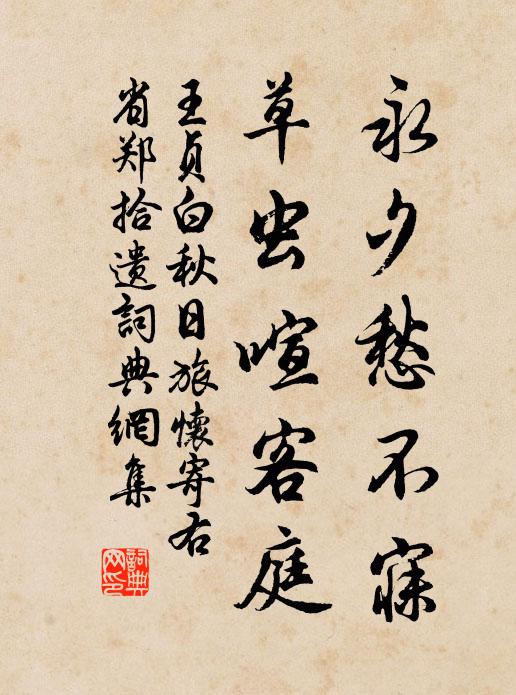 永夕愁不寐
草虫喧客庭
王贞白秋日旅懷寄右
省郑拾遗詞典網集
詞典
网印